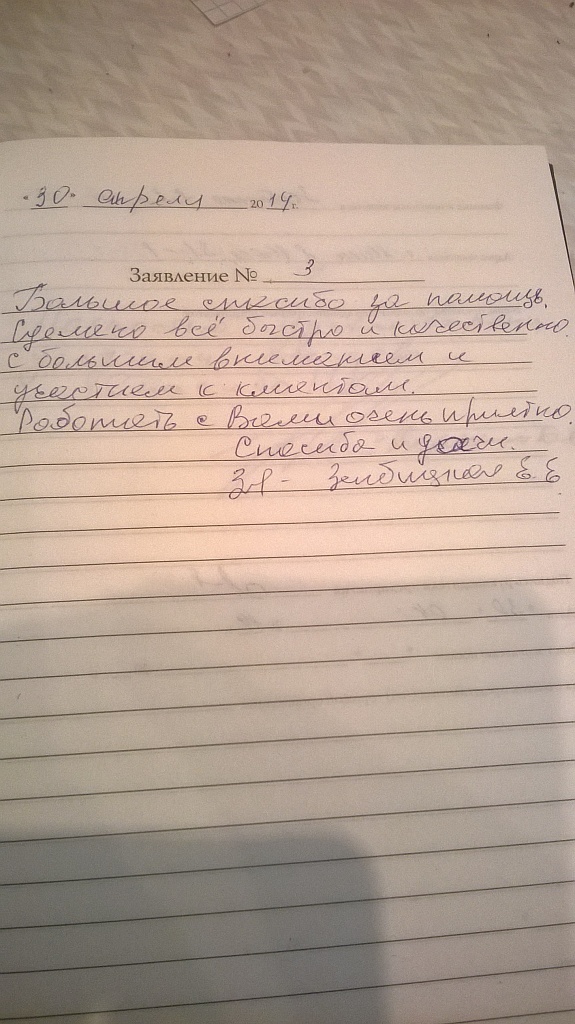 "30" апреля 2014г.
Заявление № 3
Большое спасибо за помощь.
Сделано всё быстро и качественно.
с большим вниманием и
участием к клиентам.
Работать с Вами очень приятно.
Спасибо и удачи.
Е.Е